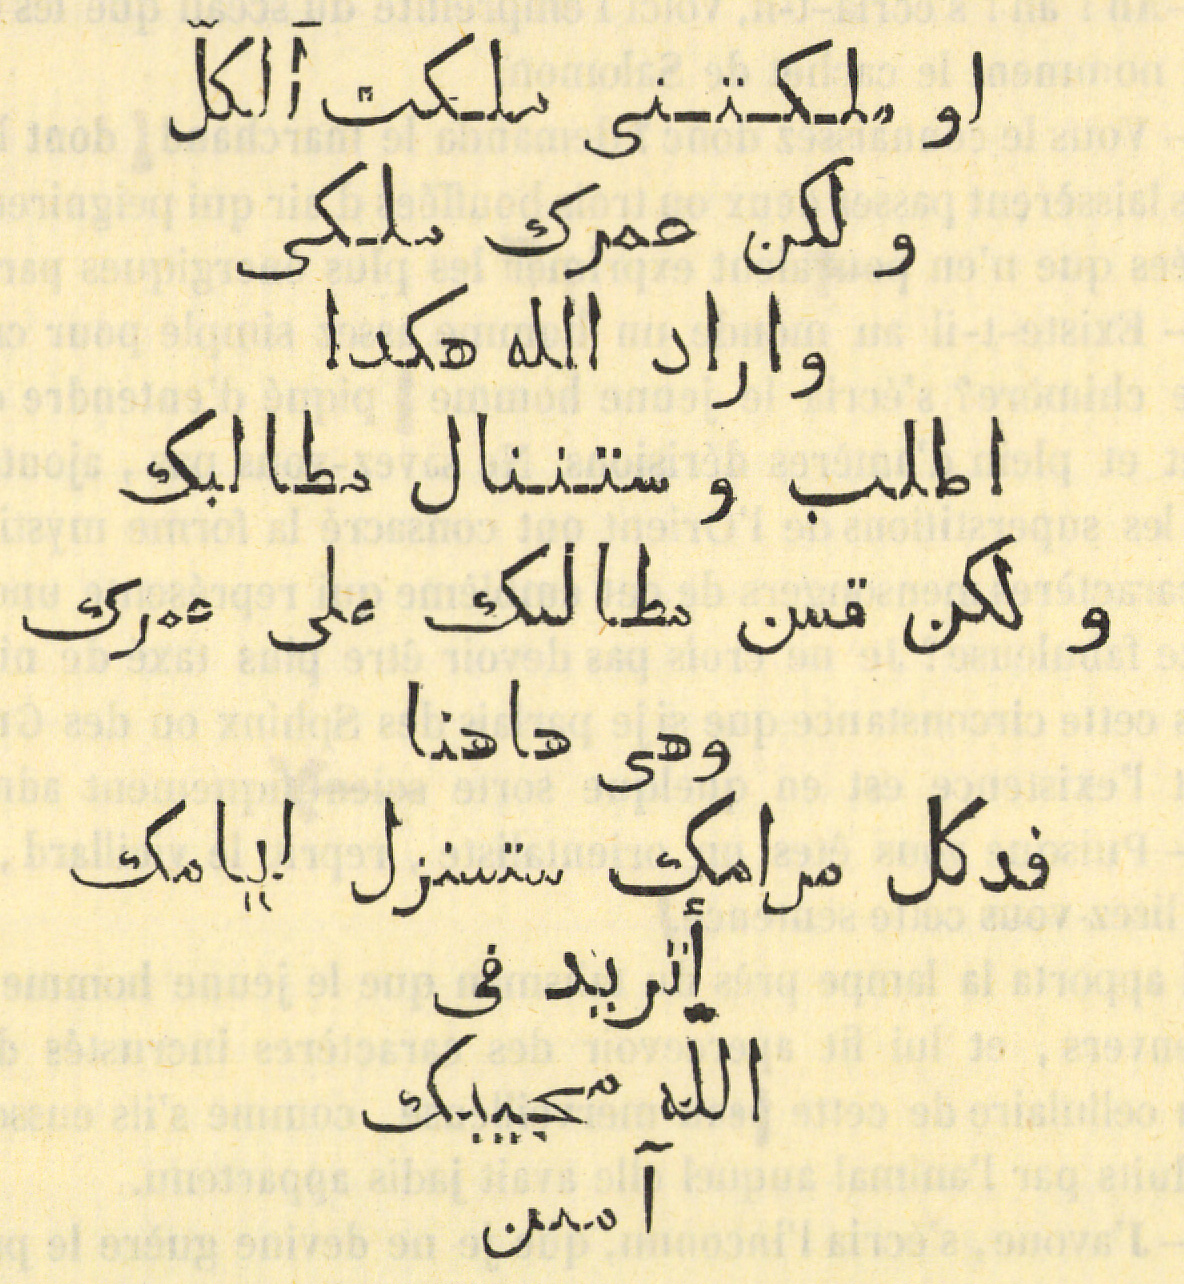 او ملكتنى ملكت آلكلّ
و لكن عمرك ملكى
واراد الله هكذا
اطلب و ستننال مطالبك
و لكن قس مطالبك على عمرك
وهى هاهنا
فبكل مرامك ستسنزل ايامك
أتريد فى
الله مجيبك
آمين